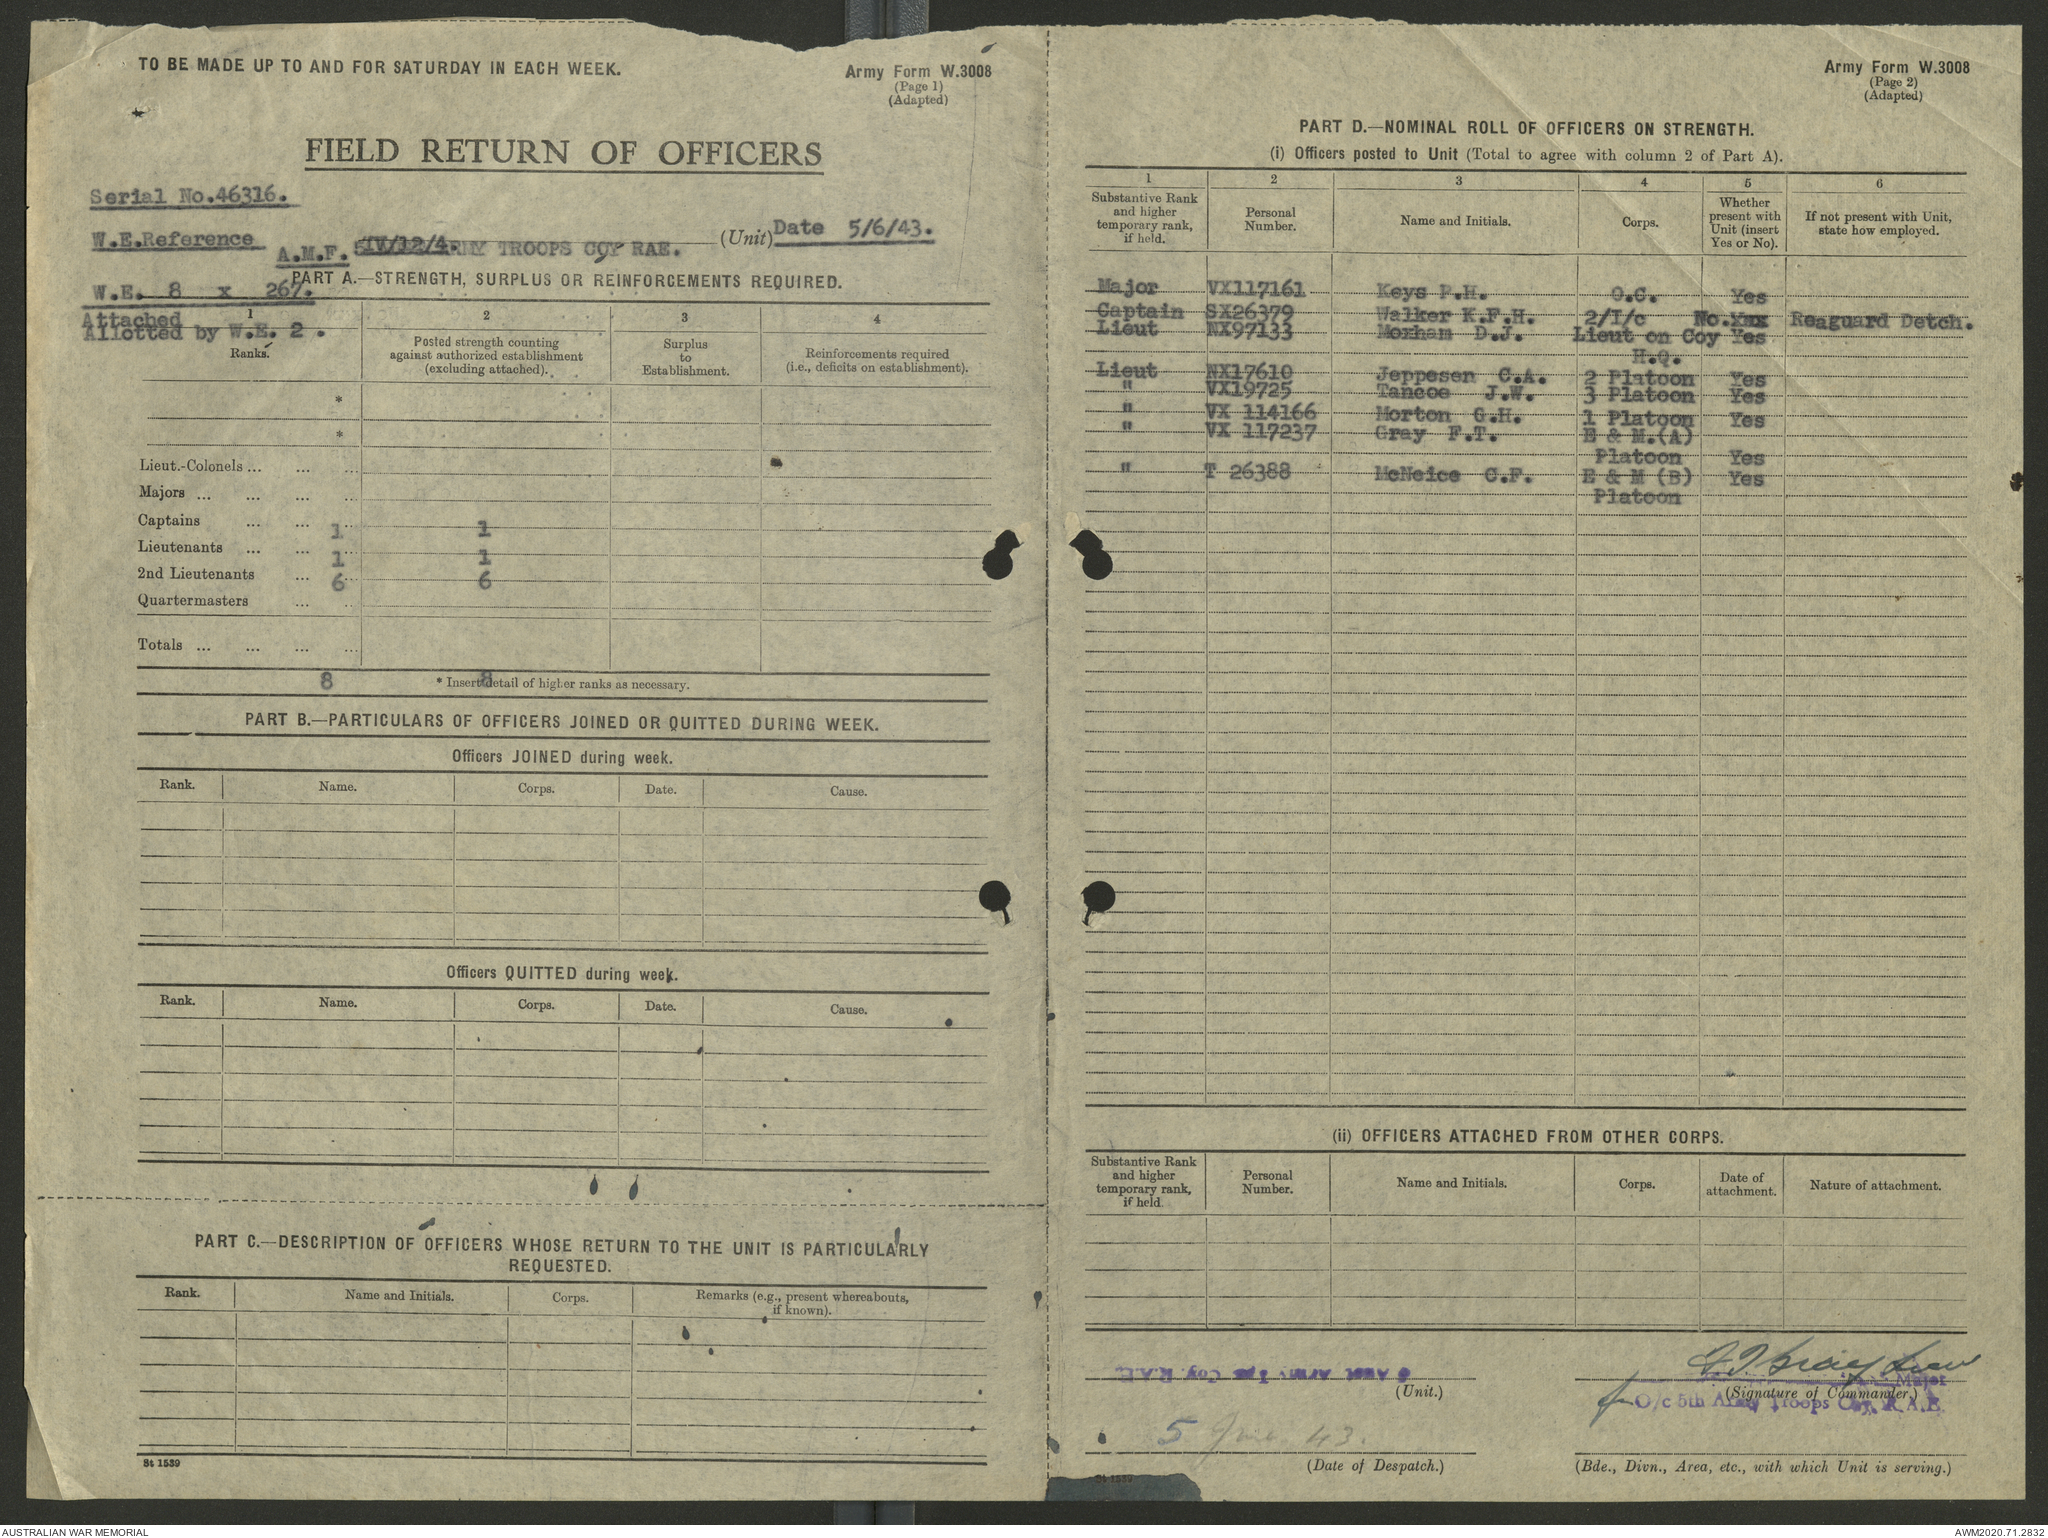 TO BE MADE UP TO AND FOR SATURDAY IN EACH WEEK.
Army Form W.3008
(Page 1)
(Adapted)
FIELD RETURN OF OFFICERS
Serial No.46316.
W.E.Reference
A.M.F. IV/12/4. ARMY TROOPS COY RAE. (Unit) Date 5/6/43.
PART A.—STRENGTH, SURPLUS OR REINFORCEMENTS REQUIRED.
W.E. 8 x 267.
Attached
Allotted by W.E. 2 .
1 2 3 4
Ranks. Posted strength counting against authorized establishment (excluding attached). Surplus to Establishment. Reinforcements required (i.e., deficits on establishment).
*
*
Lieut.-Colonels ... ... ...
Majors ... ... ... ...
Captains ... ... ... 1 1
Lieutenants ... ... ... 1 1
2nd Lieutenants ... ... 6 6
Quartermasters ... ...
Totals ... ... ... ...
8 8
* Insert detail of higher ranks as necessary.
PART B.—PARTICULARS OF OFFICERS JOINED OR QUITTED DURING WEEK.
Officers JOINED during week.
Rank. Name. Corps. Date. Cause.
Officers QUITTED during week.
Rank. Name. Corps. Date. Cause.
PART C.—DESCRIPTION OF OFFICERS WHOSE RETURN TO THE UNIT IS PARTICULARLY
REQUESTED.
Rank. Name and Initials. Corps. Remarks (e.g., present whereabouts, if known).
St 1539
Army Form W.3008
(Page 2)
(Adapted)
PART D.—NOMINAL ROLL OF OFFICERS ON STRENGTH.
(i) Officers posted to Unit (Total to agree with column 2 of Part A).
1 2 3 4 5 6
Substantive Rank and higher temporary rank, if held. Personal Number. Name and Initials. Corps. Whether present with Unit (insert Yes or No). If not present with Unit, state how employed.
Major VX117161 Keys P.H. O.C. Yes
Captain SX26379 Walker K.F.H. 2/I/c No.xxx Reaguard Detch.
Lieut NX97133 Moxham D.J. Lieut on Coy Yes
H.Q.
Lieut NX17610 Jeppesen C.A. 2 Platoon Yes
" VX19725 Tancoe J.W. 3 Platoon Yes
" VX 114166 Morton G.H. 1 Platoon Yes
" VX 117237 Gray F.T. E & M.(A)
Platoon Yes
" T 26388 McNeice C.F. E & M (B) Yes
Platoon
(ii) OFFICERS ATTACHED FROM OTHER CORPS.
Substantive Rank and higher temporary rank, if held. Personal Number. Name and Initials. Corps. Date of attachment. Nature of attachment.
Aust Army Tps Coy R.A.E.
(Unit.)
Major
(Signature of Commander.)
for O/c 5th Army Troops Coy. R.A.E.
5 June 43.
(Date of Despatch.)
(Bde., Divn., Area, etc., with which Unit is serving.)
St 1539
AUSTRALIAN WAR MEMORIAL
AWM2020.71.2832